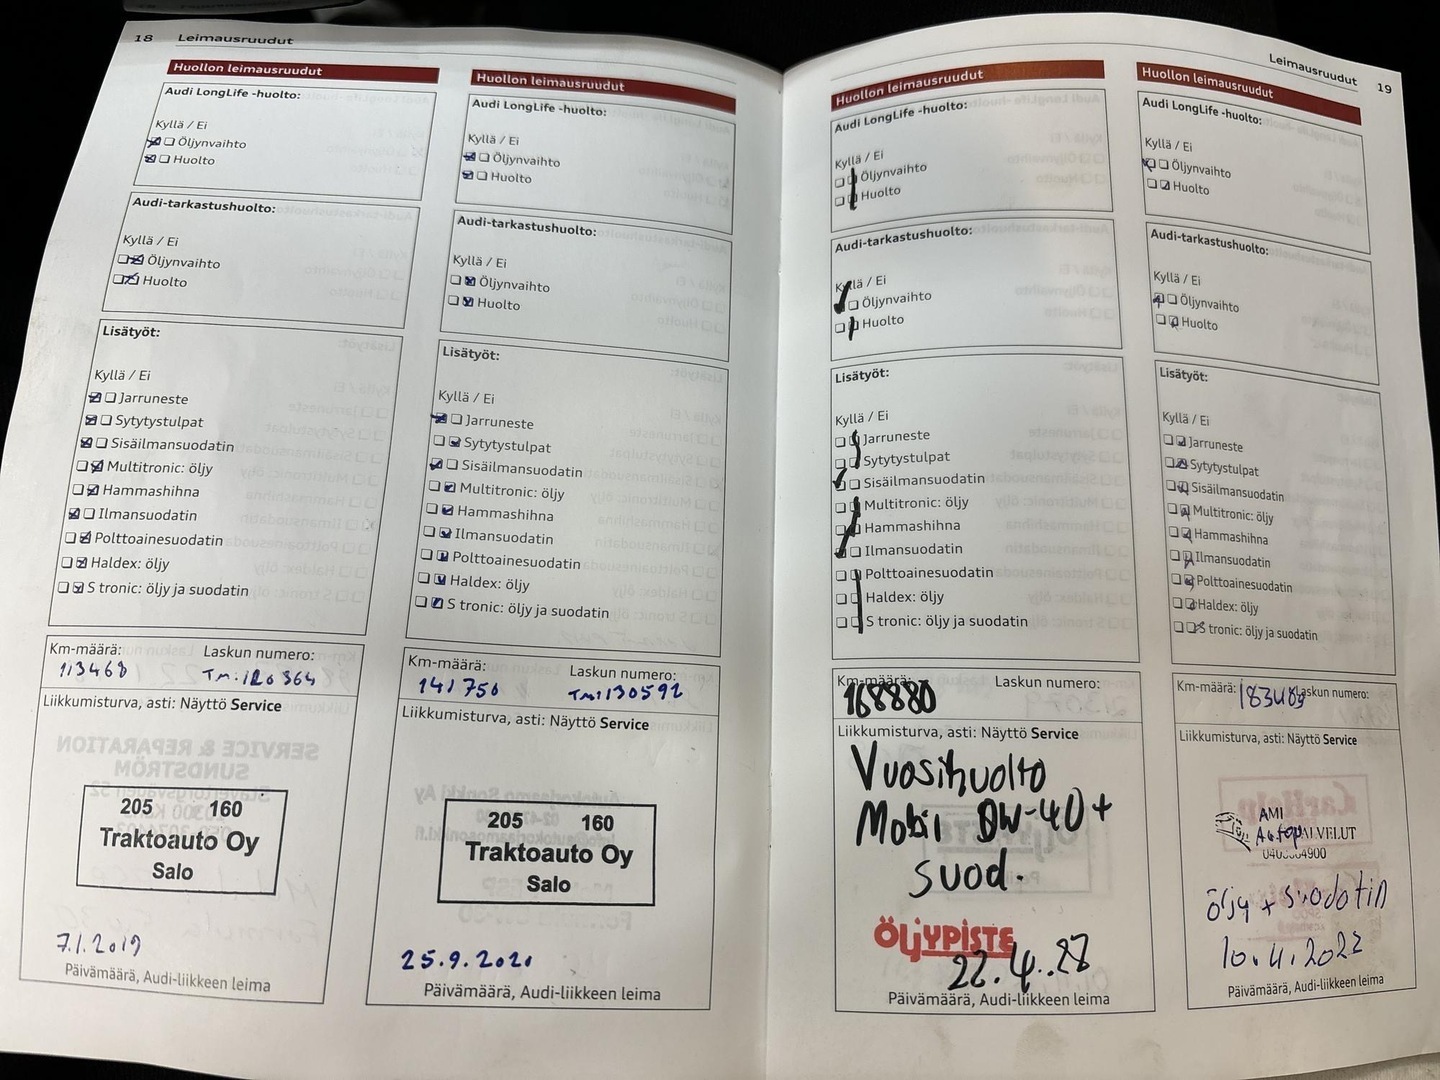 18 Leimausruudut
Huollon leimausruudut
Audi LongLife -huolto:
Kyllä / Ei
Öljynvaihto
Huolto
Audi-tarkastushuolto:
Kyllä / Ei
Öljynvaihto
Huolto
Lisätyöt:
Kyllä / Ei
Jarruneste
Sytytystulpat
Sisäilmansuodatin
Multitronic: öljy
Hammashihna
Ilmansuodatin
Polttoainesuodatin
Haldex: öljy
S tronic: öljy ja suodatin
Km-määrä: Laskun numero:
113468 TM:120364
Liikkumisturva, asti: Näyttö Service
205 160
Traktoauto Oy
Salo
7.1.2019
Päivämäärä, Audi-liikkeen leima
Huollon leimausruudut
Audi LongLife -huolto:
Kyllä / Ei
Öljynvaihto
Huolto
Audi-tarkastushuolto:
Kyllä / Ei
Öljynvaihto
Huolto
Lisätyöt:
Kyllä / Ei
Jarruneste
Sytytystulpat
Sisäilmansuodatin
Multitronic: öljy
Hammashihna
Ilmansuodatin
Polttoainesuodatin
Haldex: öljy
S tronic: öljy ja suodatin
Km-määrä: Laskun numero:
141750 TM:130592
Liikkumisturva, asti: Näyttö Service
205 160
Traktoauto Oy
Salo
25.9.2020
Päivämäärä, Audi-liikkeen leima
Leimausruudut 19
Huollon leimausruudut
Audi LongLife -huolto:
Kyllä / Ei
Öljynvaihto
Huolto
Audi-tarkastushuolto:
Kyllä / Ei
Öljynvaihto
Huolto
Lisätyöt:
Kyllä / Ei
Jarruneste
Sytytystulpat
Sisäilmansuodatin
Multitronic: öljy
Hammashihna
Ilmansuodatin
Polttoainesuodatin
Haldex: öljy
S tronic: öljy ja suodatin
Km-määrä: Laskun numero:
168880
Liikkumisturva, asti: Näyttö Service
Vuosihuolto
Mobil 0W-40+
suod.
ÖLJYPISTE
22.4..
Päivämäärä, Audi-liikkeen leima
Huollon leimausruudut
Audi LongLife -huolto:
Kyllä / Ei
Öljynvaihto
Huolto
Audi-tarkastushuolto:
Kyllä / Ei
Öljynvaihto
Huolto
Lisätyöt:
Kyllä / Ei
Jarruneste
Sytytystulpat
Sisäilmansuodatin
Multitronic: öljy
Hammashihna
Ilmansuodatin
Polttoainesuodatin
Haldex: öljy
S tronic: öljy ja suodatin
Km-määrä: Laskun numero:
Liikkumisturva, asti: Näyttö Service
AMI
öljy + suodatin
Päivämäärä, Audi-liikkeen leima